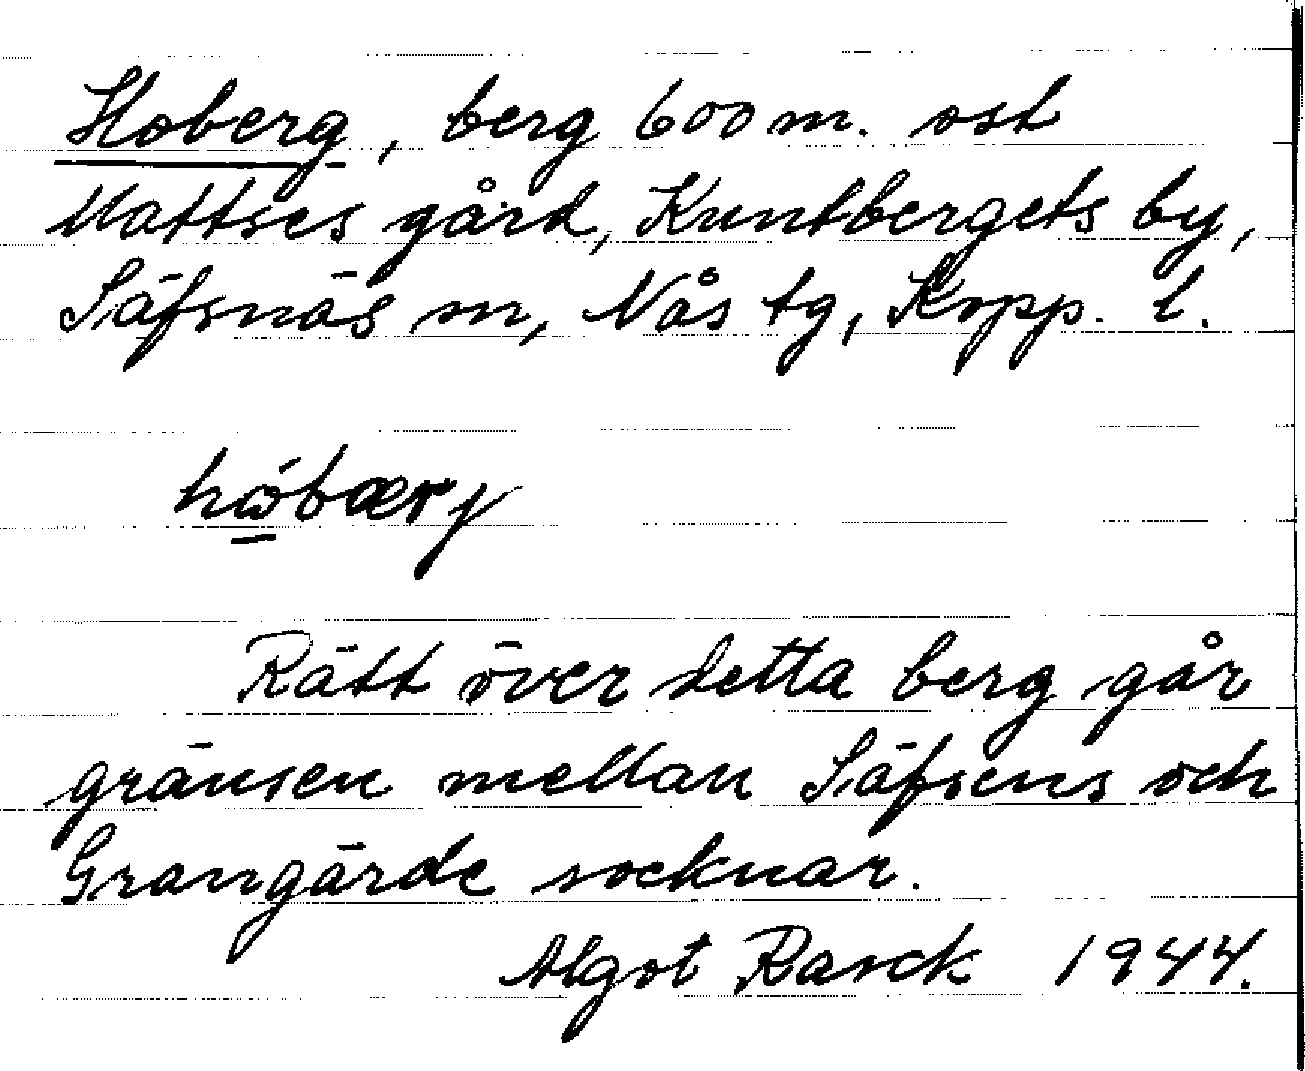 Hoberg, berg 600 m. ost
Mattses gård, Kuntbergets by,
Säfsnäs sn, Nås tg, Kopp. l.
hώ̲bærj
Rätt över detta berg går
gränsen mellan Säfsens och
Grangärde socknar.
Algot Rasck 1944.